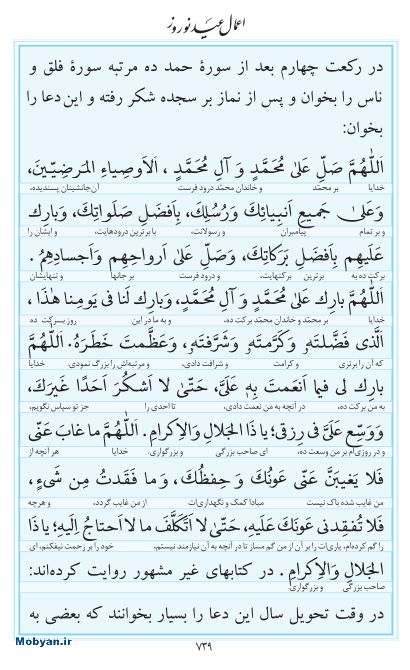 اعمال عید نوروز
در رکعت چهارم بعد از سورهٔ حمد ده مرتبه سورهٔ فلق و
ناس را بخوان و پس از نماز بر سجده شکر رفته و این دعا را
بخوان:
اَللّٰهُمَّ صَلِّ عَلىٰ مُحَمَّدٍ وَ آلِ مُحَمَّدٍ ، اَلاَوصِیاءِ المَرضِیّینَ،
خدایا بر محمّد و خاندان محمّد درود فرست آن جانشینان پسندیده،
وَعَلىٰ جَمیعِ اَنبِیائِكَ وَرُسُلِكَ، بِاَفضَلِ صَلَواتِكَ، وَبارِك
و بر تمام پیامبران و رسولانت، با برترین درودهایت، و ایشان را
عَلَیهِم بِاَفضَلِ بَرَکاتِكَ، وَصَلِّ عَلىٰ اَرواحِهِم وَاَجسادِهِم .
برکت ده به برترین برکتهایت، و درود فرست بر جانها و تنهایشان
اَللّٰهُمَّ بارِك عَلىٰ مُحَمَّدٍ وَ آلِ مُحَمَّدٍ، وَبارِك لَنا فی یَومِنا هٰذا ،
خدایا بر محمّد و خاندان محمّد برکت ده، و به ما در این روز برکت ده
اَلَّذی فَضَّلتَهُ وَکَرَّمتَهُ وَشَرَّفتَهُ، وَعَظَّمتَ خَطَرَهُ. اَللّٰهُمَّ
که آن را برتری و کرامت و شرافت دادی، و مرتبه‌اش را بزرگ نمودی. خدایا
بارِك لی فیما اَنعَمتَ بِهِ عَلَیَّ، حَتّىٰ لا اَشکُرَ اَحَدًا غَیرَكَ،
به من برکت ده، در آنچه به من نعمت دادی، تا احدی را جز تو سپاس نگویم،
وَوَسِّع عَلَیَّ فی رِزقی؛ یا ذَا الجَلالِ وَالاِکرامِ. اَللّٰهُمَّ ما غابَ عَنّی
و در روزی‌ام بر من وسعت ده، ای صاحب بزرگی و بزرگواری. خدایا هر آنچه از
فَلا یَغیبَنَّ عَنّی عَونُكَ وَ حِفظُكَ، وَ ما فَقَدتُ مِن شَیءٍ،
من غایب شده باک نیست مبادا کمک و نگهداری‌ات از من غایب گردد، و هرچه
فَلا تُفقِدنی عَونَكَ عَلَیهِ، حَتّىٰ لا اَتَکَلَّفَ ما لا اَحتاجُ اِلَیهِ؛ یا ذَا
را گم کرده‌ام، یاری‌ات را بر آن از من گم مساز تا در آنچه به آن نیازمند نیستم، خود را بر زحمت نیفکنم، ای
الجَلالِ وَالاِکرامِ . در کتابهای غیر مشهور روایت کرده‌اند:
صاحب بزرگی و بزرگواری.
در وقت تحویل سال این دعا را بسیار بخوانند که بعضی به
۷۳۹
Mobyan.ir